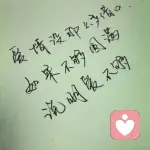 爱情没那么复杂。
如果不够圆满
说明爱不够